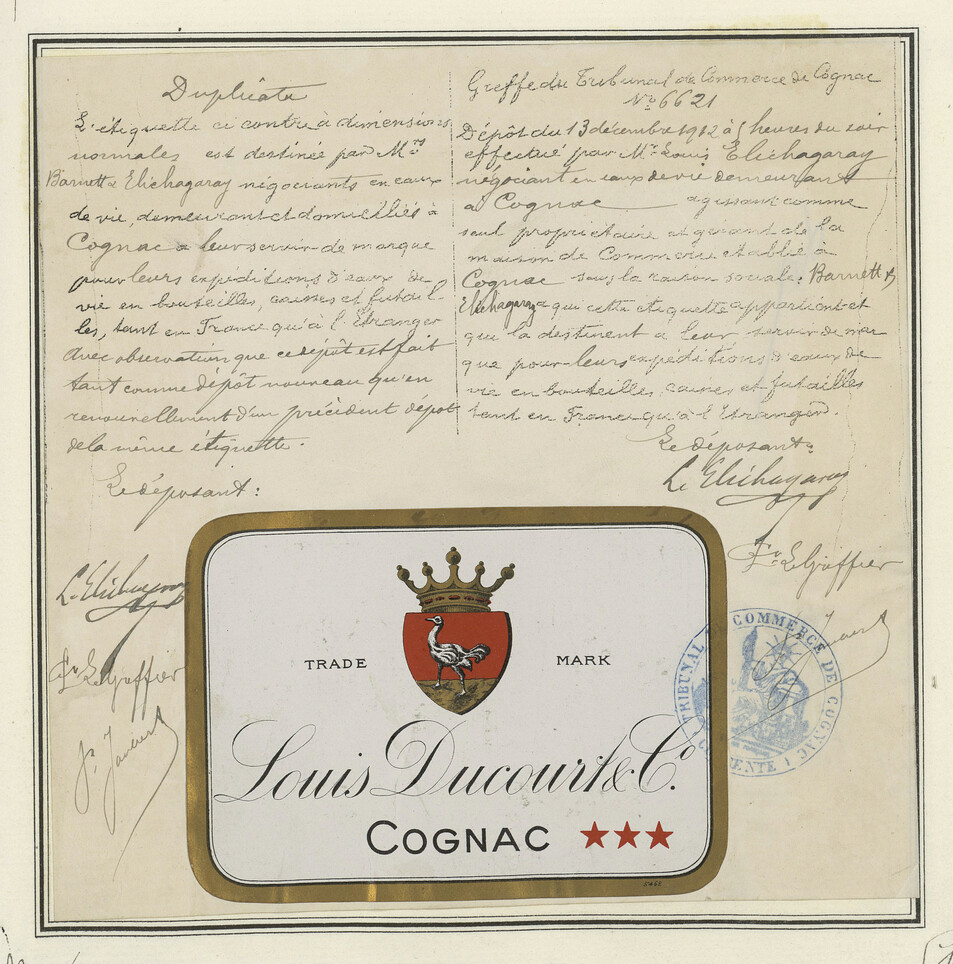 Duplicata
L'étiquette ci contre à dimensions
normales est destinée par Mrs
Barnett & Elichagaray négociants en eaux
de vie, demeurant et domiciliés à
Cognac a leur servir de marque
pour leurs expéditions d'eaux de
vie en bouteilles, caisses et futail-
les, tant en France qu'à l'Etranger
Avec observation que ce dépôt est fait
tant comme dépôt nouveau qu'en
renouvellement d'un précédent dépôt
de la même étiquette.
Le déposant:
L. Elichagaray
Le Greffier
Greffe du Tribunal de Commerce de Cognac
No 6621
Dépôt du 13 décembre 1912 à 5 heures du soir
effectué par Mr Louis Elichagaray
négociant en eaux de vie demeurant
à Cognac agissant comme
seul propriétaire et gérant de la
maison de Commerce établie à
Cognac sous la raison sociale: Barnett &
Elichagaray a qui cette étiquette appartient et
qui la destinent a leur servir de mar
que pour leurs expéditions d'eaux de
vie en bouteilles, caisses et futailles
tant en France qu'à l'Etranger.
Le déposant
L. Elichagaray
Le Greffier
TRIBUNAL DE COMMERCE DE COGNAC
TRADE MARK
Louis Ducourt & Co.
COGNAC